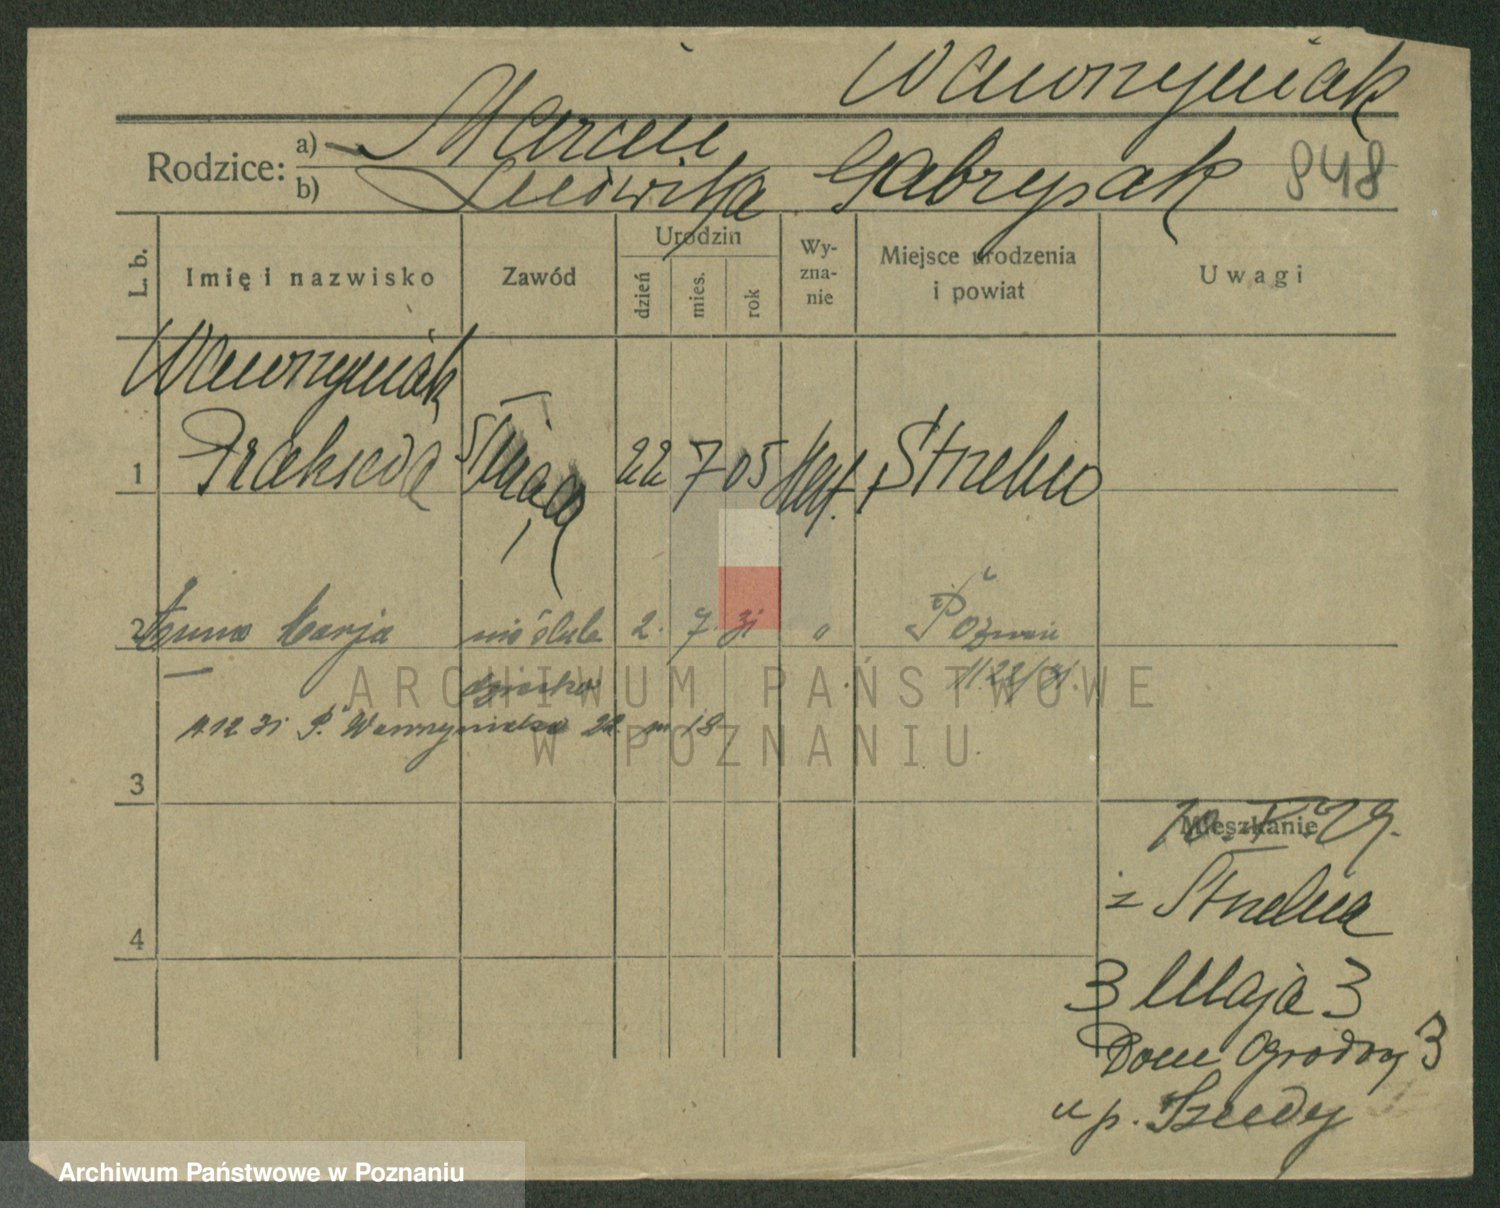 Wawrzyniak
Rodzice: a) Marcin
b) Ludwika Gabrysiak 948
L. b. Imię i nazwisko Zawód Urodzin dzień mies. rok Wyznanie Miejsce urodzenia i powiat Uwagi
Wawrzyniak
1 Prakseda służąca 22 7 05 kat. Strzelno
2 Anna Marja nieślubne 2. 7. 31 " Poznań
dziecko
11.12 31 P. Wawrzyniaka 22 m 18
3
Mieszkanie
10. V. 29.
4
z Strzelna
3 Maja 3
Dom Ogrodowy 3
u p.
ARCHIWUM PAŃSTWOWE
W POZNANIU
Archiwum Państwowe w Poznaniu